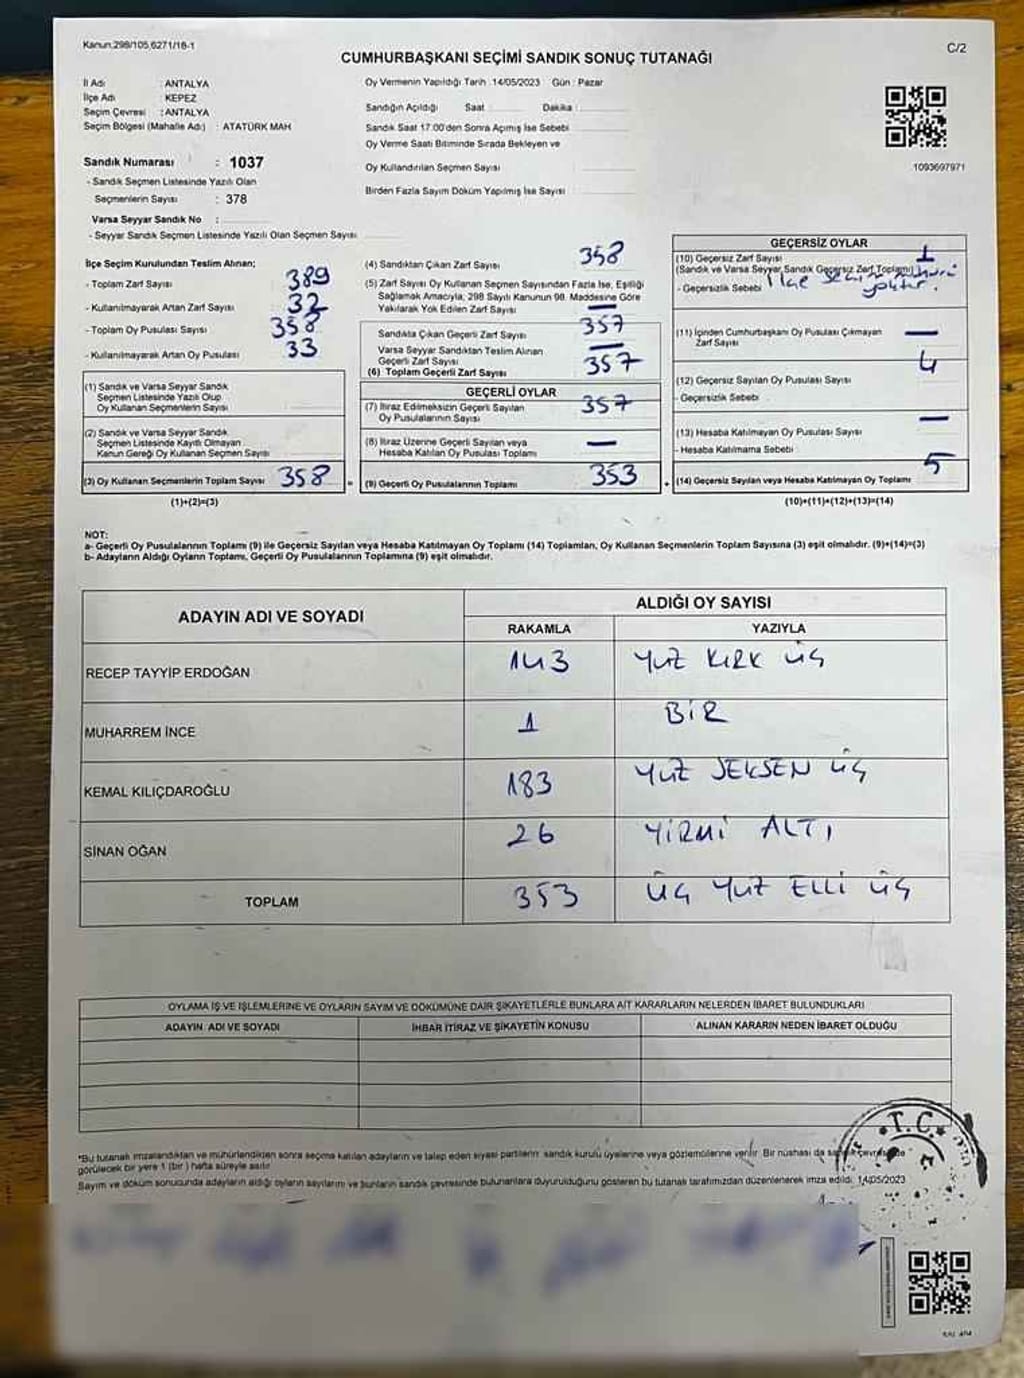 Kanun;298/105,6271/18-1
C/2
CUMHURBAŞKANI SEÇİMİ SANDIK SONUÇ TUTANAĞI
İl Adı : ANTALYA
İlçe Adı : KEPEZ
Seçim Çevresi : ANTALYA
Seçim Bölgesi (Mahalle Adı) : ATATÜRK MAH
Sandık Numarası : 1037
- Sandık Seçmen Listesinde Yazılı Olan
Seçmenlerin Sayısı : 378
Varsa Seyyar Sandık No :
- Seyyar Sandık Seçmen Listesinde Yazılı Olan Seçmen Sayısı
Oy Vermenin Yapıldığı Tarih :14/05/2023 Gün : Pazar
Sandığın Açıldığı Saat Dakika :
Sandık Saat 17:00'den Sonra Açımış İse Sebebi
Oy Verme Saati Bitiminde Sırada Bekleyen ve
Oy Kullandırılan Seçmen Sayısı
Birden Fazla Sayım Döküm Yapılmış İse Sayısı
1093697971
İlçe Seçim Kurulundan Teslim Alınan;
- Toplam Zarf Sayısı 389
- Kullanılmayarak Artan Zarf Sayısı 32
- Toplam Oy Pusulası Sayısı 358
- Kullanılmayarak Artan Oy Pusulası 33
(1) Sandık ve Varsa Seyyar Sandık
Seçmen Listesinde Yazılı Olup
Oy Kullanan Seçmenlerin Sayısı
(2) Sandık ve Varsa Seyyar Sandık
Seçmen Listesinde Kayıtlı Olmayan
Kanun Gereği Oy Kullanan Seçmen Sayısı
(3) Oy Kullanan Seçmenlerin Toplam Sayısı 358
(1)+(2)=(3)
(4) Sandıktan Çıkan Zarf Sayısı 358
(5) Zarf Sayısı Oy Kullanan Seçmen Sayısından Fazla İse, Eşitliği
Sağlamak Amacıyla, 298 Sayılı Kanunun 98. Maddesine Göre
Yakılarak Yok Edilen Zarf Sayısı —
Sandıkta Çıkan Geçerli Zarf Sayısı 357
Varsa Seyyar Sandıktan Teslim Alınan
Geçerli Zarf Sayısı —
(6) Toplam Geçerli Zarf Sayısı 357
GEÇERLİ OYLAR
(7) İtiraz Edilmeksizin Geçerli Sayılan
Oy Pusulalarının Sayısı 357
(8) İtiraz Üzerine Geçerli Sayılan veya
Hesaba Katılan Oy Pusulası Toplamı —
(9) Geçerli Oy Pusulalarının Toplamı 353
GEÇERSİZ OYLAR
(10) Geçersiz Zarf Sayısı 1
(Sandık ve Varsa Seyyar Sandık Geçersiz Zarf Toplamı)
- Geçersizlik Sebebi ilçe seçim mührü
yoktur.
(11) İçinden Cumhurbaşkanı Oy Pusulası Çıkmayan
Zarf Sayısı —
(12) Geçersiz Sayılan Oy Pusulası Sayısı 4
- Geçersizlik Sebebi
(13) Hesaba Katılmayan Oy Pusulası Sayısı —
- Hesaba Katılmama Sebebi
(14) Geçersiz Sayılan veya Hesaba Katılmayan Oy Toplamı 5
(10)+(11)+(12)+(13)=(14)
NOT:
a- Geçerli Oy Pusulalarının Toplamı (9) ile Geçersiz Sayılan veya Hesaba Katılmayan Oy Toplamı (14) Toplamları, Oy Kullanan Seçmenlerin Toplam Sayısına (3) eşit olmalıdır. (9)+(14)=(3)
b- Adayların Aldığı Oyların Toplamı, Geçerli Oy Pusulalarının Toplamına (9) eşit olmalıdır.
ADAYIN ADI VE SOYADI
ALDIĞI OY SAYISI
RAKAMLA YAZIYLA
RECEP TAYYİP ERDOĞAN 143 YUZ KIRK ÜÇ
MUHARREM İNCE 1 BİR
KEMAL KILIÇDAROĞLU 183 YUZ SEKSEN ÜÇ
SİNAN OĞAN 26 YİRMİ ALTI
TOPLAM 353 ÜÇ YUZ ELLİ ÜÇ
OYLAMA İŞ VE İŞLEMLERİNE VE OYLARIN SAYIM VE DÖKÜMÜNE DAİR ŞİKAYETLERLE BUNLARA AİT KARARLARIN NELERDEN İBARET BULUNDUKLARI
ADAYIN ADI VE SOYADI İHBAR İTİRAZ VE ŞİKAYETİN KONUSU ALINAN KARARIN NEDEN İBARET OLDUĞU
*Bu tutanak imzalandıktan ve mühürlendikten sonra seçime katılan adayların ve talep eden siyasi partilerin sandık kurulu üyelerine veya gözlemcilerine verilir. Bir nüshası da sandık çevresinde
görülecek bir yere 1 (bir ) hafta süreyle asılır.
Sayım ve döküm sonucunda adayların aldığı oyların sayılarını ve bunların sandık çevresinde bulunanlara duyurulduğunu gösteren bu tutanak tarafımızdan düzenlenerek imza edildi. 14/05/2023
T.C.